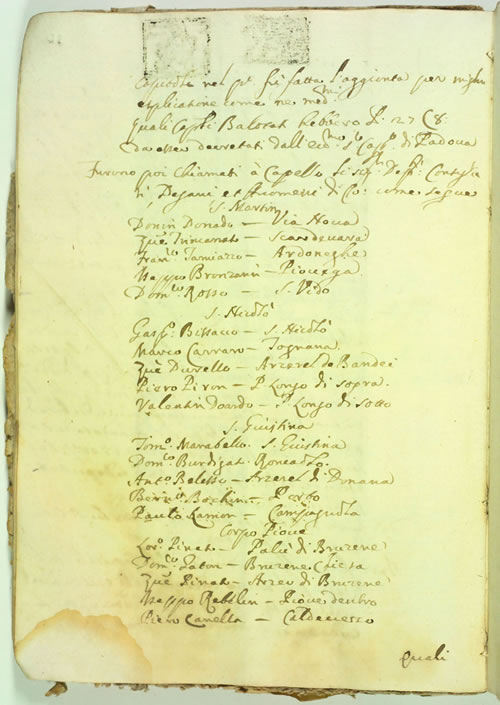 Capitoli nel qual fù fatta l'aggionta per miglior
esplicatione come ne med.mi
quali Capli Balotat hebbero P: 27 C: 8:
da esser decretati dall' Ecc.mo S.r Cap.o di Padova
Furono poi chiamati à Capello li Sig.ri Deff.ri Consiglie
ri, Degani et di Co: come segue
S. Martin
Donin Donado — Via Nova
Zuè Trincanato — Scardevara
Fran.co Tamiazzo — Ardoneghe
Beppo Bronzann — Piovega
Dom.co Rosso — S. Vido
S. Nicolò
Gasp.o Bissacco — S. Nicolò
Marco Carraro — Tognana
Zuè Dusello — Arzerel de Bandei
Piero Piron — P. Longo di sopra
Valentin Doardo — P. Longo di sotto
S. Giustina
Tom.o Marabello. S. Giustina
Dom.co Burdigat. Roncaolo.
Ant.o Belesso — Arzerel di Donana
Bern.o Bochin — Porto
Paulo Ramon — Campagnola
Corpo Piove
Lor.o Pinat — Palù di Bruzene
Dom.co Paton — Bruzene Chiesa
Zuè Pinat — Arzer di Bruzene
Beppo Rebelin — Piove dentro
Piero Canella — Caldevezzo
Quali